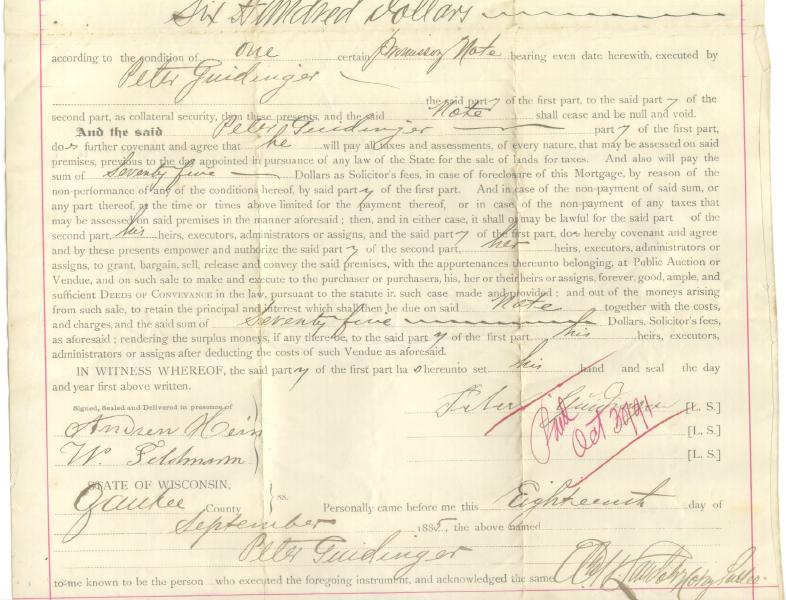 Six Hundred Dollars
according to the condition of one certain Promissory Note bearing even date herewith, executed by
Peter Guidinger
the said party of the first part, to the said party of the
second part, as collateral security, then these presents, and the said Note shall cease and be null and void.
And the said Peter Guidinger party of the first part,
does further covenant and agree that he will pay all taxes and assessments, of every nature, that may be assessed on said
premises, previous to the day appointed in pursuance of any law of the State for the sale of lands for taxes. And also will pay the
sum of Seventy five Dollars as Solicitor's fees, in case of foreclosure of this Mortgage, by reason of the
non-performance of any of the conditions hereof, by said party of the first part. And in case of the non-payment of said sum, or
any part thereof, at the time or times above limited for the payment thereof, or in case of the non-payment of any taxes that
may be assessed on said premises in the manner aforesaid; then, and in either case, it shall or may be lawful for the said part of the
second part, his heirs, executors, administrators or assigns, and the said party of the first part, does hereby covenant and agree
and by these presents empower and authorize the said party of the second part, her heirs, executors, administrators or
assigns, to grant, bargain, sell, release and convey the said premises, with the appurtenances thereunto belonging, at Public Auction or
Vendue, and on such sale to make and execute to the purchaser or purchasers, his, her or their heirs or assigns, forever, good, ample, and
sufficient DEEDS OF CONVEYANCE in the law, pursuant to the statute in such case made and provided; and out of the moneys arising
from such sale, to retain the principal and interest which shall then be due on said Note together with the costs,
and charges, and the said sum of Seventy five Dollars, Solicitor's fees,
as aforesaid; rendering the surplus moneys, if any there be, to the said party of the first part his heirs, executors,
administrators or assigns after deducting the costs of such Vendue as aforesaid.
IN WITNESS WHEREOF, the said party of the first part has hereunto set his hand and seal the day
and year first above written.
Signed, Sealed and Delivered in presence of
Peter Guidinger [L. S.]
Paid Oct 30/91
Andrew Hein [L. S.]
W. Feldmann [L. S.]
STATE OF WISCONSIN,
Ozaukee County ss. Personally came before me this Eighteenth day of
September 1885, the above named
Peter Guidinger
to me known to be the person who executed the foregoing instrument, and acknowledged the same